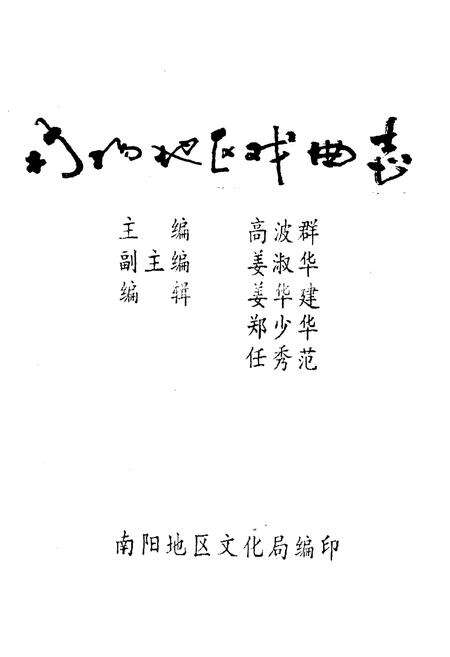 南阳地区戏曲志
主编 高波群
副主编 姜淑华
编辑 姜华建
郑少华
任秀范
南阳地区文化局编印